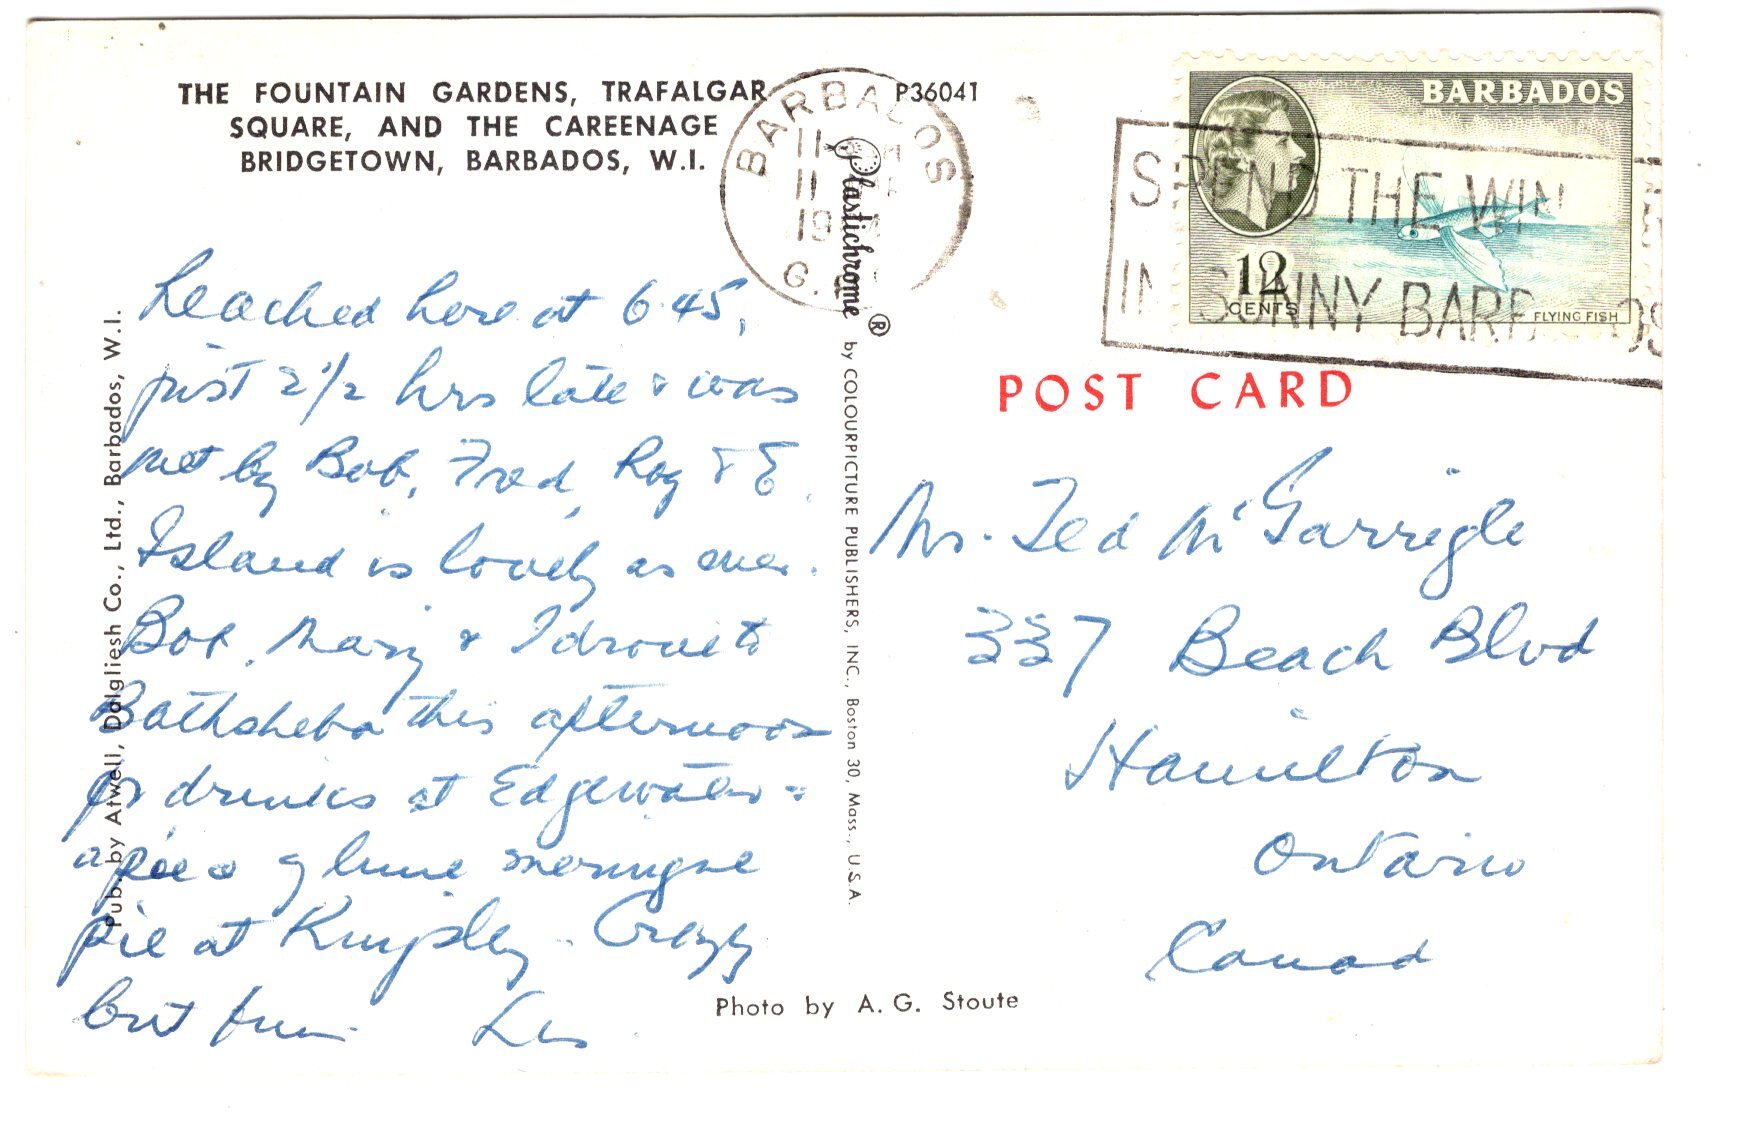 THE FOUNTAIN GARDENS, TRAFALGAR
SQUARE, AND THE CAREENAGE
BRIDGETOWN, BARBADOS, W.I.
P36041
BARBADOS
11
11
19
G.
BARBADOS
12
CENTS
FLYING FISH
SPEND THE WIN
IN SUNNY BARBADOS
POST CARD
Reached here at 6.45,
just 2 1/2 hrs late & was
met by Bob, Fred, Roy & E.
Island is lovely as ever.
Bob, Mary & I drove to
Bathsheba this afternoon
for drinks at Edgewater &
a piece of lime meringue
pie at Kingsley. Crazy
but fun. Les
Mr. Ted McGarrigle
337 Beach Blvd
Hamilton
Ontario
Canad
Pub. by Atwell, Dalgliesh Co., Ltd., Barbados, W.I.
Plastichrome ® by COLOURPICTURE PUBLISHERS, INC., Boston 30, Mass., U.S.A.
Photo by A. G. Stoute